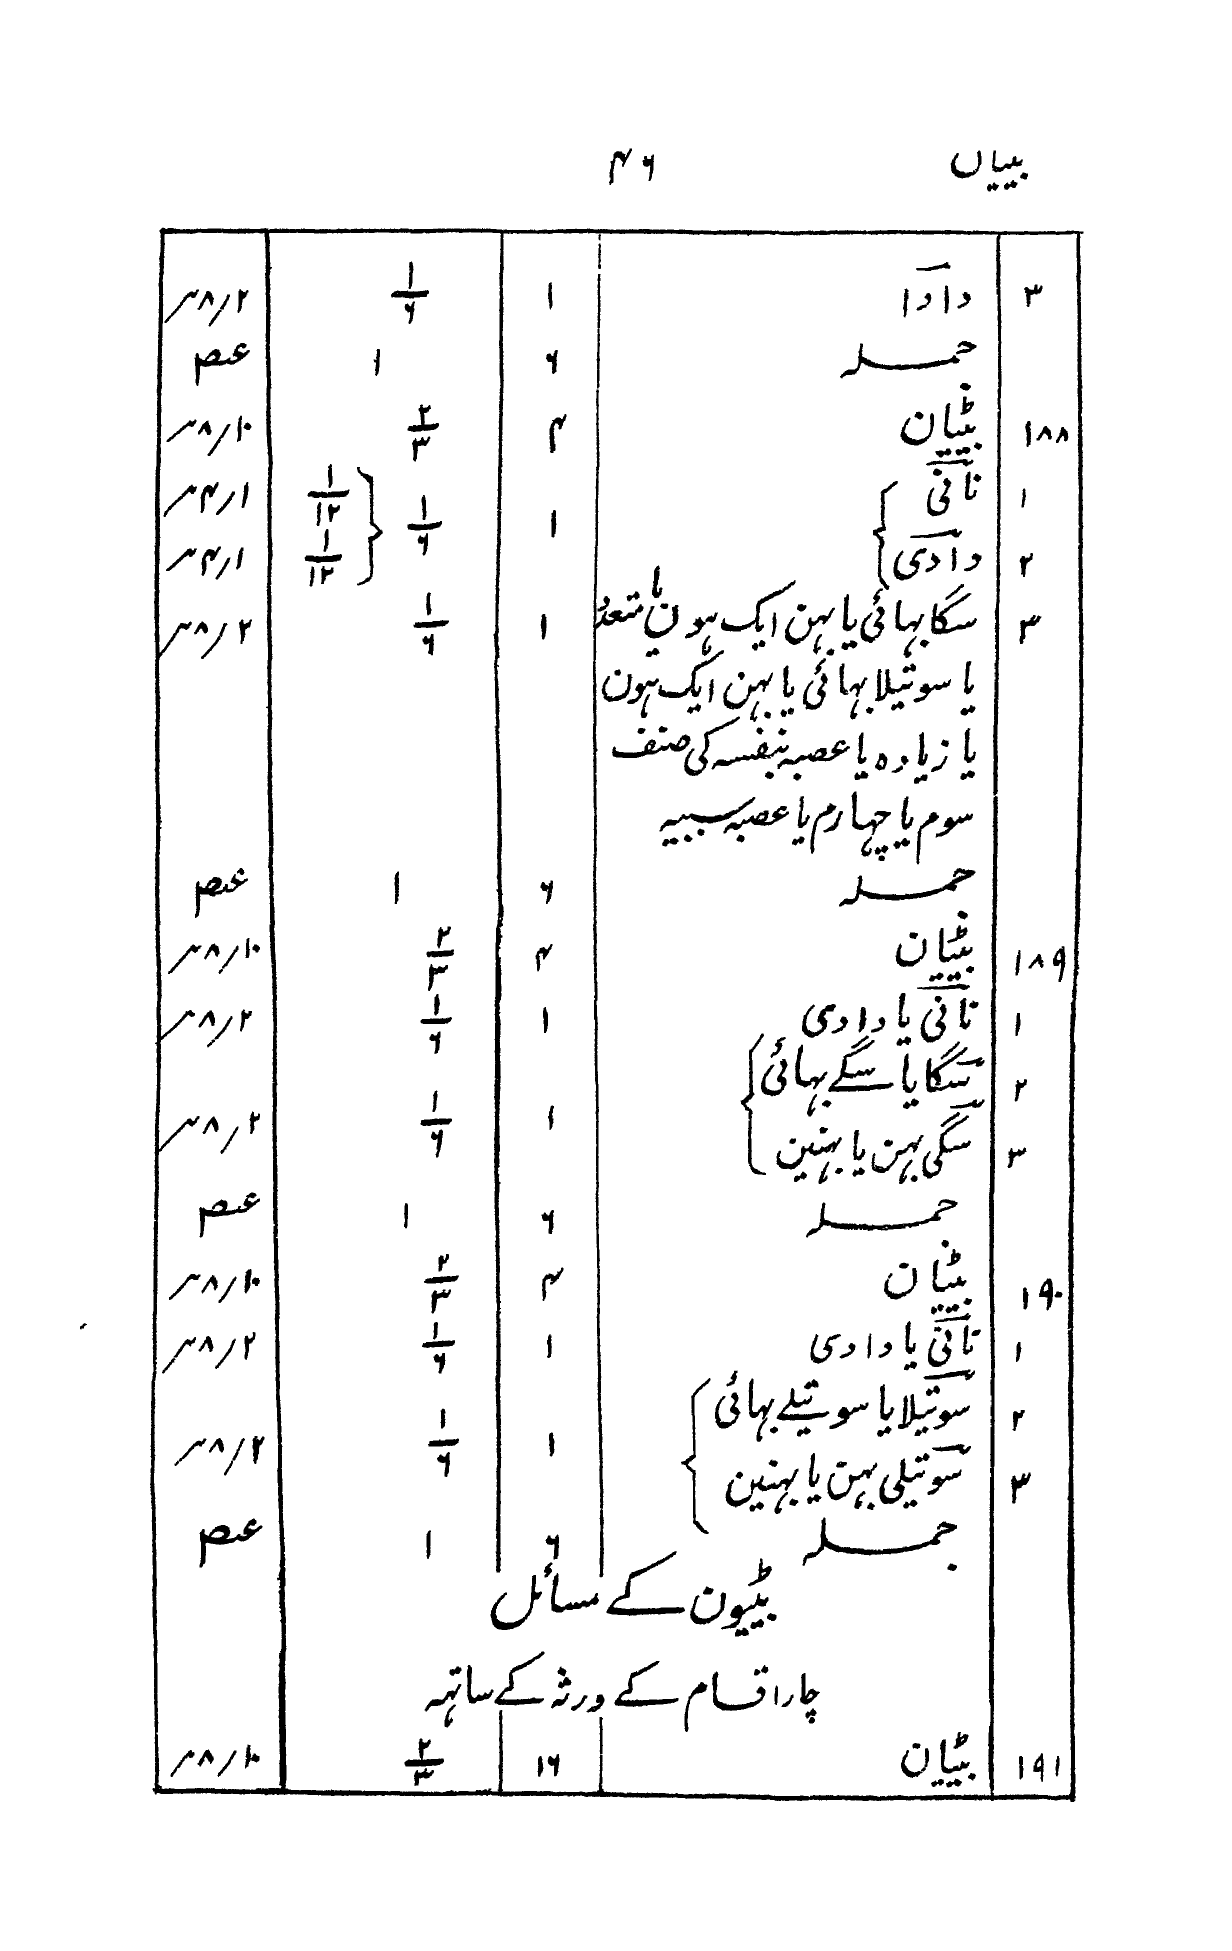 بیٹیاں ۴۶
۳ دادا ۱ ۱/۶ ۲/۸ر
جملہ ۶ ۱ عصہ
۱۸۸ بیٹیان ۴ ۲/۳ ۱۰/۸ر
۱ نانی ۱ ۱/۶ ۱/۱۲ ۱/۴ر
۲ دادی ۱/۱۲ ۱/۴ر
۳ سگا بہائی یا بہن ایک ہو ن یا متعدد ۱ ۱/۶ ۲/۸ر
یا سوتیلا بہائی یا بہن ایک ہون
یا زیادہ یا عصبہ بنفسہ کی صنف
سوم یا چہارم یا عصبہ سببیہ
جملہ ۶ ۱ عصہ
۱۸۹ بیٹیان ۴ ۲/۳ ۱۰/۸ر
۱ نانی یا دادی ۱ ۱/۶ ۲/۸ر
۲ سگا یا سگے بہائی
۱ ۱/۶ ۲/۸ر
۳ سگی بہن یا بہنین
جملہ ۶ ۱ عصہ
۱۹۰ بیٹیان ۴ ۲/۳ ۱۰/۸ر
۱ نانی یا دادی ۱ ۱/۶ ۲/۸ر
۲ سوتیلا یا سوتیلے بہائی
۱ ۱/۶ ۲/۸ر
۳ سوتیلی بہن یا بہنین
جملہ ۶ ۱ عصہ
بیٹیون کے مسائل
چار اقسام کے ورثہ کے ساتہہ
۱۹۱ بیٹیان ۱۶ ۲/۳ ۱۰/۸ر